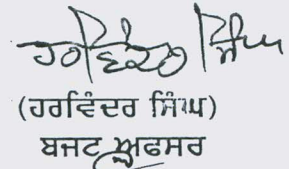 ਹਰਵਿੰਦਰ ਸਿੰਘ
(ਹਰਵਿੰਦਰ ਸਿੰਘ)
ਬਜਟ ਅਫਸਰ